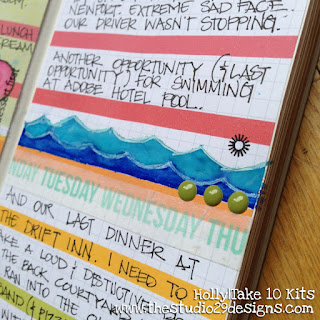 NEWPORT. EXTREME SAD FACE.
OUR DRIVER WASN'T STOPPING.
LUNCH
CREAM
ANOTHER OPPORTUNITY (& LAST
OPPORTUNITY) FOR SWIMMING
AT ADOBE HOTEL POOL.
TUESDAY WEDNESDAY THU
AND OUR LAST DINNER AT
THE DRIFT INN. I NEED TO
A LOUD & DESTUCTIVE
THE BACK COURTYA
RAN INTO THE
Holly|Take 10 Kits
www.thestudio29designs.com